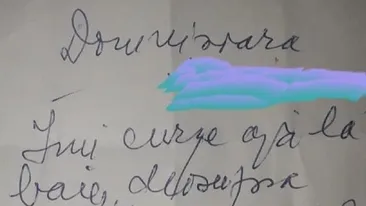 Domnișoara
Îmi curge apă la
baie, deasupra